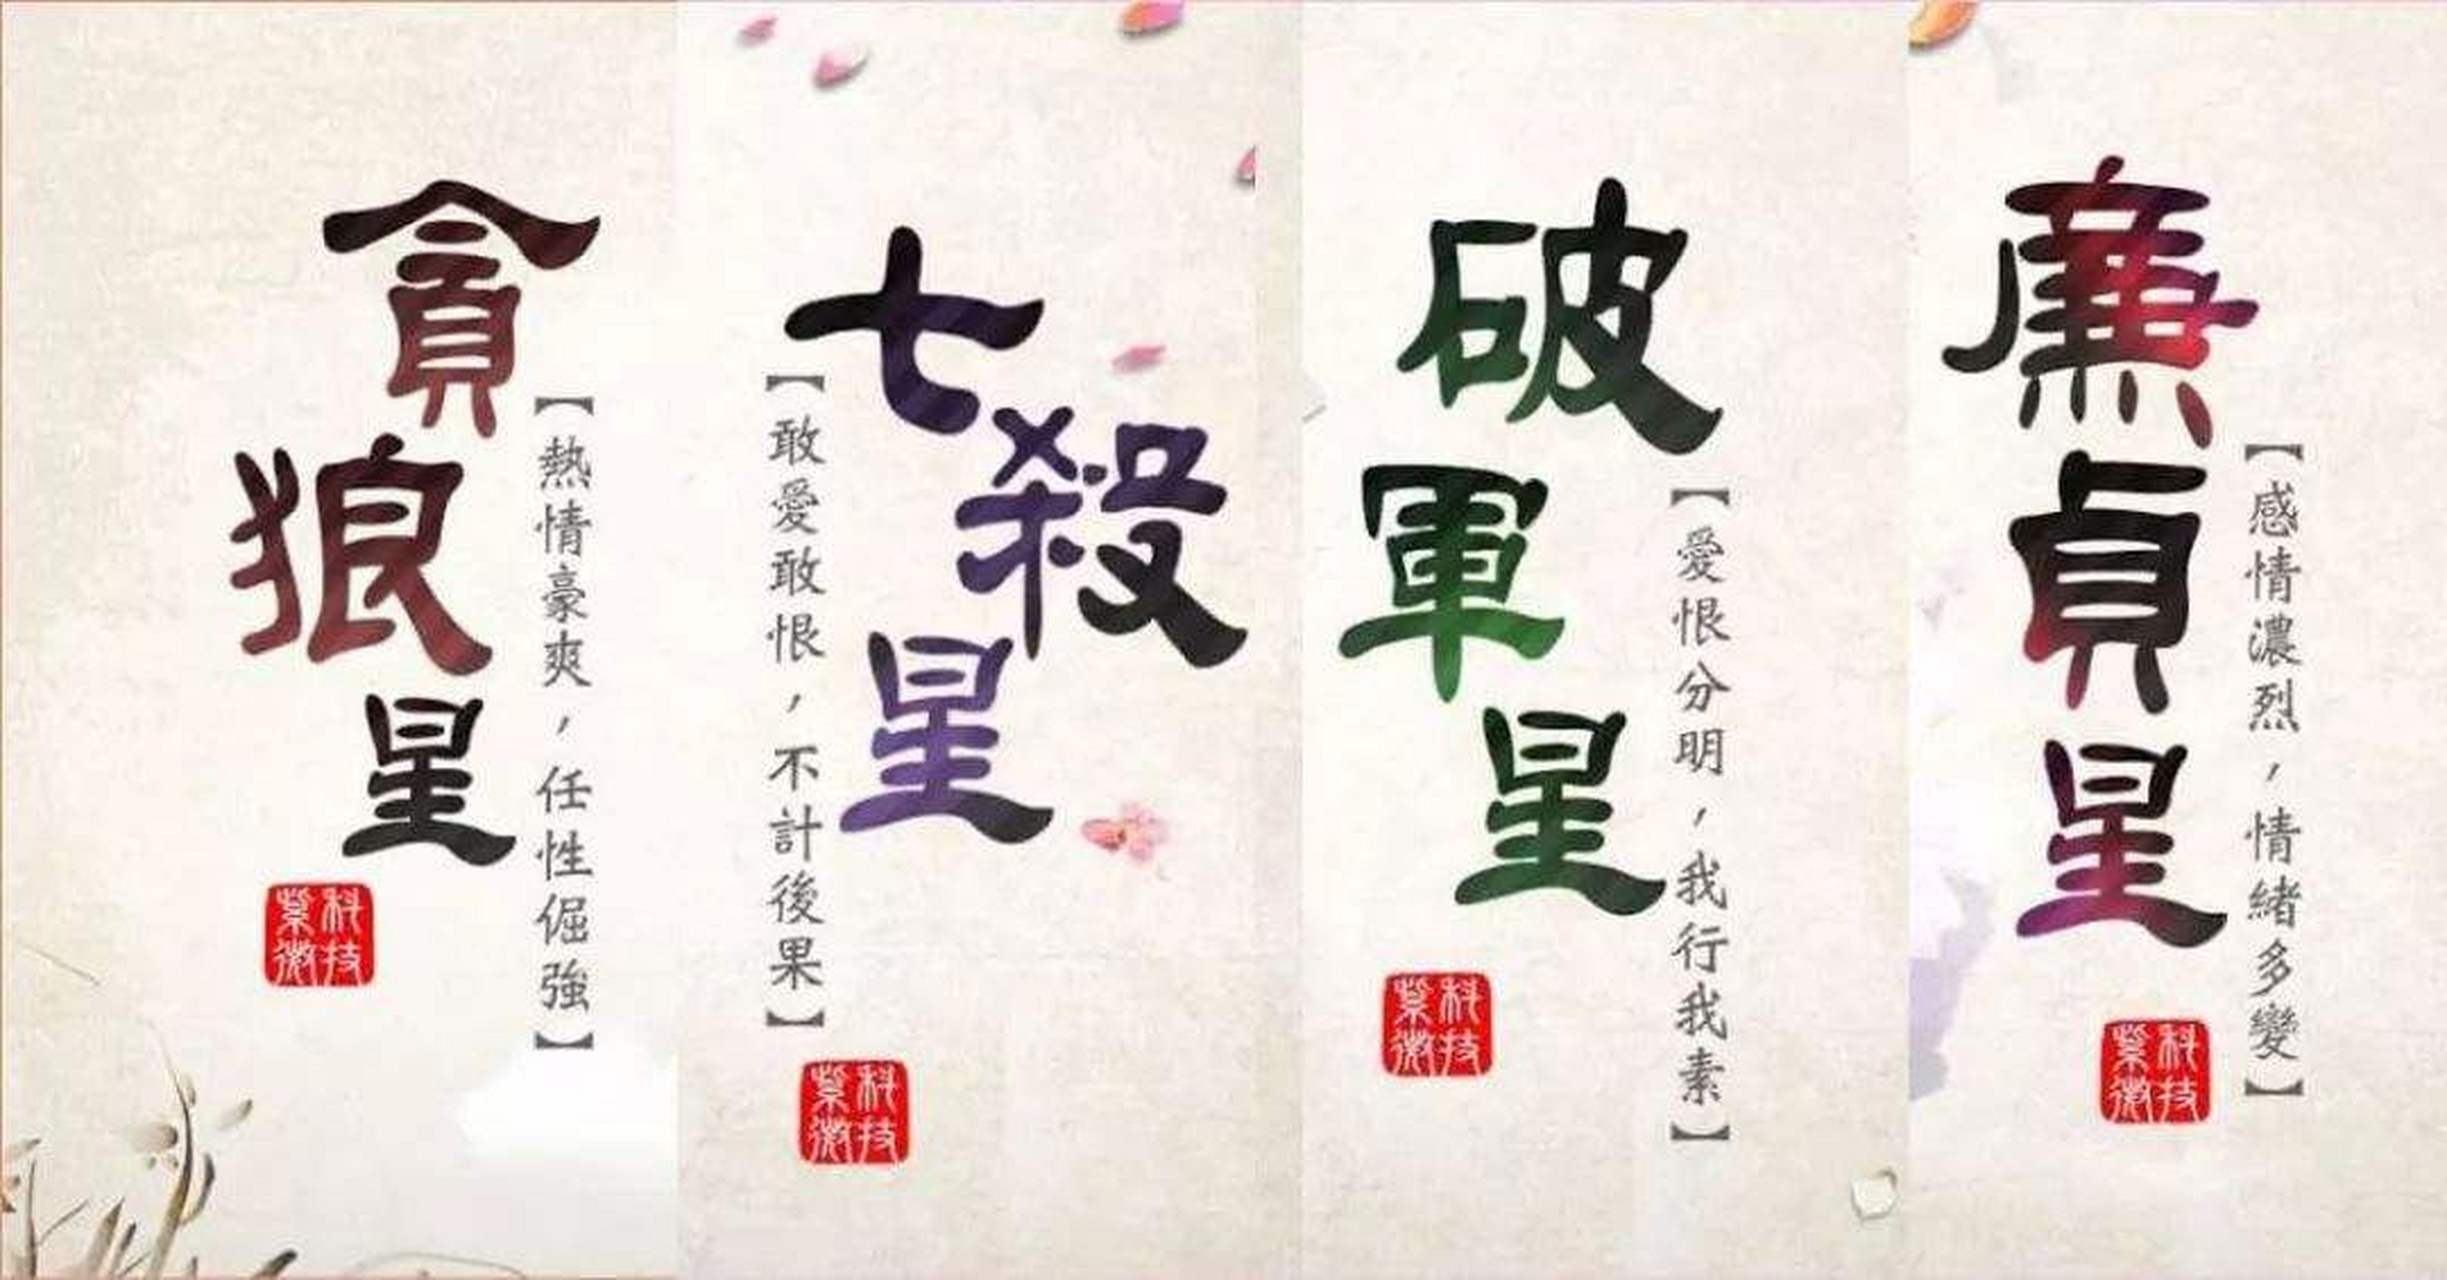 貪狼星
【熱情豪爽，任性倔強】
紫微科技
七殺星
【敢愛敢恨，不計後果】
紫微科技
破軍星
【愛恨分明，我行我素】
紫微科技
廉貞星
【感情濃烈，情緒多變】
紫微科技